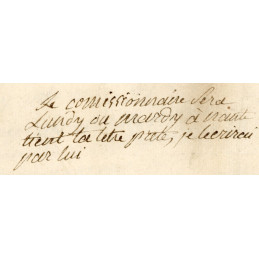 Le comissionnaire sera
Lundy ou mardy à nant
tient ta letre prete, je lecrirai
par lui